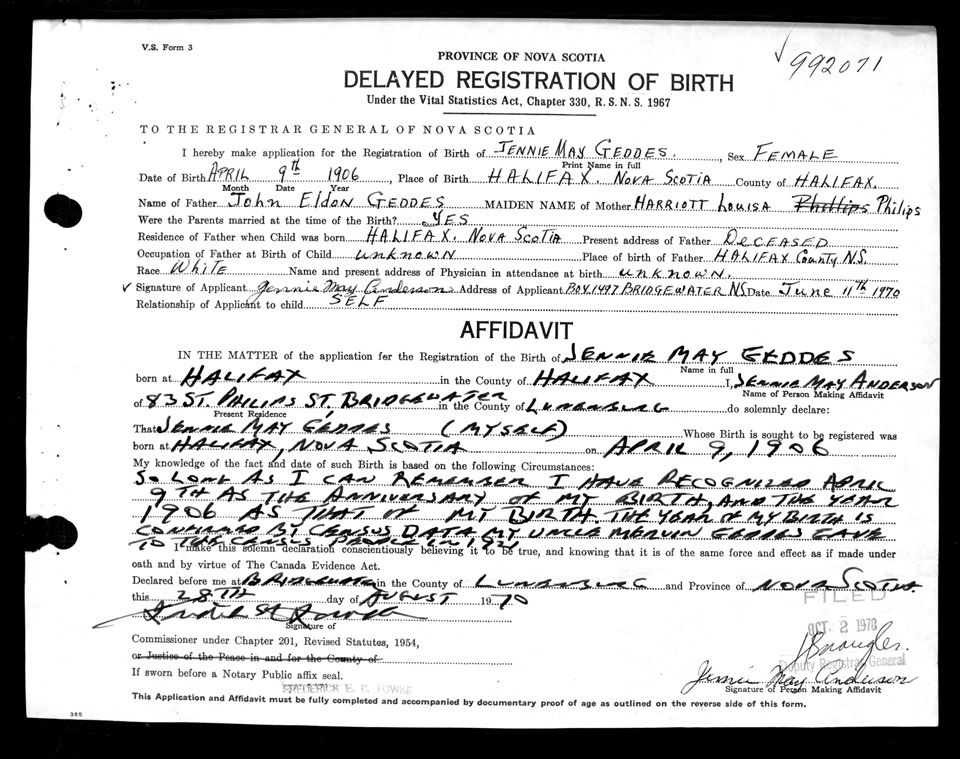 V.S. Form 3
PROVINCE OF NOVA SCOTIA
992071
DELAYED REGISTRATION OF BIRTH
Under the Vital Statistics Act, Chapter 330, R.S.N.S. 1967
TO THE REGISTRAR GENERAL OF NOVA SCOTIA
I hereby make application for the Registration of Birth of JENNIE MAY GEDDES. Sex FEMALE
Print Name in full
Date of Birth APRIL 9th 1906, Place of Birth HALIFAX. NOVA SCOTIA County of HALIFAX.
Month Date Year
Name of Father John Eldon GEDDES MAIDEN NAME of Mother HARRIOTT LOUISA Phillips Philips
Were the Parents married at the time of the Birth? YES
Residence of Father when Child was born HALIFAX. NOVA SCOTIA Present address of Father DECEASED
Occupation of Father at Birth of Child unknown Place of birth of Father HALIFAX County N.S.
Race White Name and present address of Physician in attendance at birth unknown.
✓ Signature of Applicant Jennie May Anderson Address of Applicant BOX 1497 BRIDGEWATER NS Date June 11th 1970
Relationship of Applicant to child SELF
AFFIDAVIT
IN THE MATTER of the application for the Registration of the Birth of JENNIE MAY GEDDES
Name in full
born at HALIFAX in the County of HALIFAX I, JENNIE MAY ANDERSON
Name of Person Making Affidavit
of 83 ST. PHILIPS ST, BRIDGEWATER in the County of LUNENBURG do solemnly declare:
Present Residence
That JENNIE MAY GEDDES (MYSELF) Whose Birth is sought to be registered was
born at HALIFAX, NOVA SCOTIA on APRIL 9, 1906
My knowledge of the fact and date of such Birth is based on the following Circumstances:
SO LONG AS I CAN REMEMBER I HAVE RECOGNIZED APRIL
9TH AS THE ANNIVERSARY OF MY BIRTH, AND THE YEAR
1906 AS THAT OF MY BIRTH THE YEAR OF MY BIRTH IS
CONFIRMED BY CENSUS DATA MY UNCLE MERVIN GEDDES GAVE
TO THE CENSUS
I make this solemn declaration conscientiously believing it to be true, and knowing that it is of the same force and effect as if made under
oath and by virtue of The Canada Evidence Act.
Declared before me at BRIDGEWATER in the County of LUNENBURG and Province of NOVA SCOTIA.
this 28TH day of AUGUST 1970
FILED
OCT 2 1970
Signature of
Commissioner under Chapter 201, Revised Statutes, 1954,
or Justice of the Peace in and for the County of
Deputy Registrar General
If sworn before a Notary Public affix seal.
Jennie May Anderson
FREDERICK E. C. FOWKE
Signature of Person Making Affidavit
This Application and Affidavit must be fully completed and accompanied by documentary proof of age as outlined on the reverse side of this form.
385